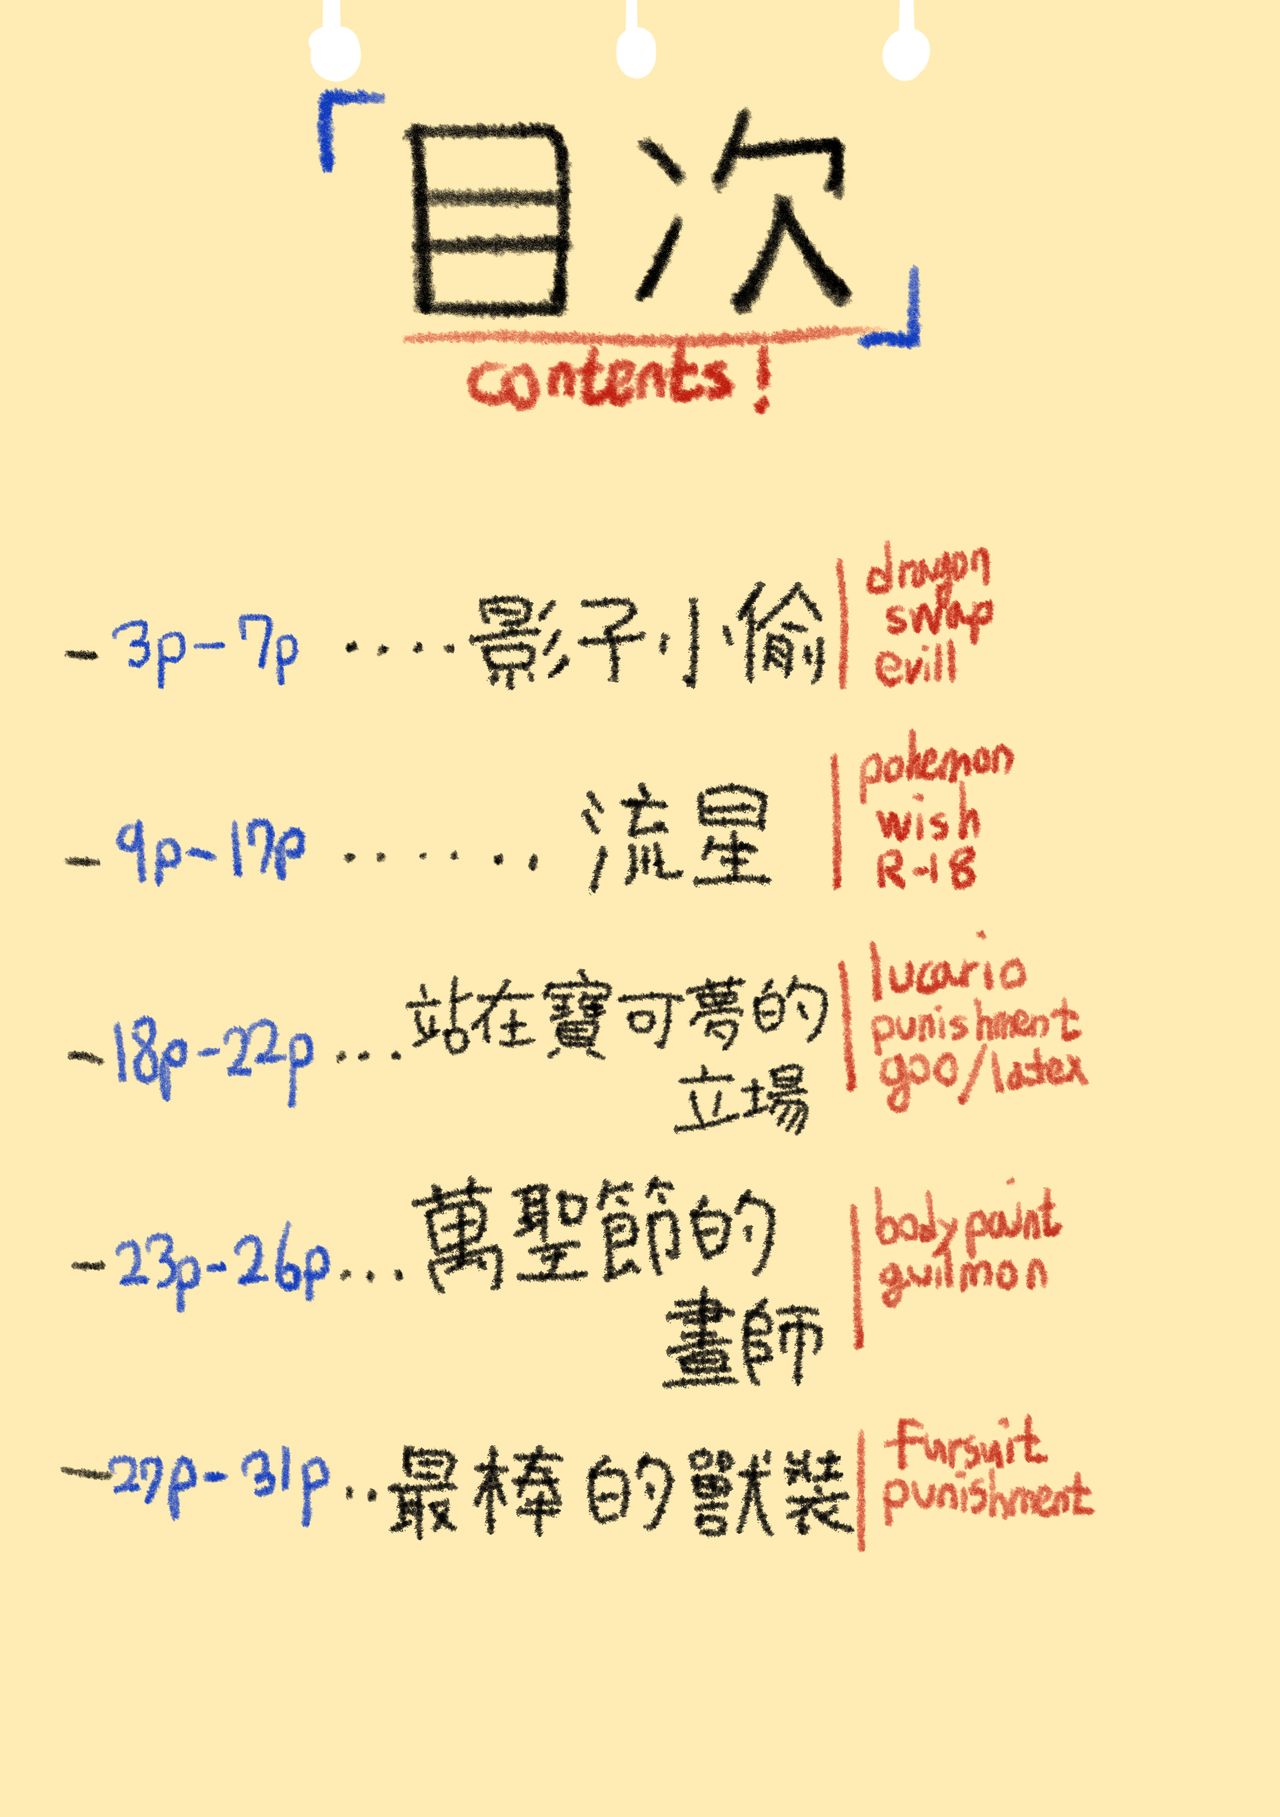 「目次」
contents!
- 3p-7p ････ 影子小偷
dragon
swap
evill
- 9p-17p ‥‥‥ 流星
pokemon
wish
R-18
- 18p-22p ... 站在寶可夢的
立場
lucario
punishment
goo/latex
- 23p-26p ... 萬聖節的
畫師
body paint
guilmon
- 27p-31p .. 最棒的獸裝
fursuit
punishment